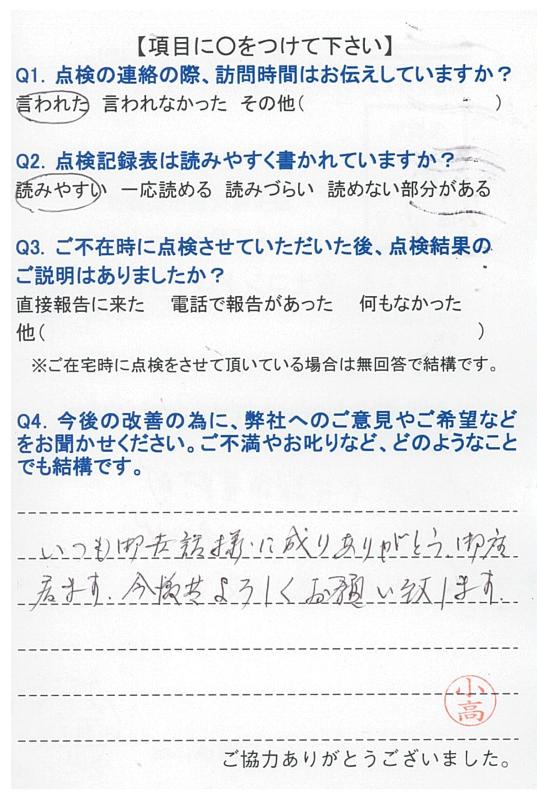 【項目に〇をつけて下さい】
Q1. 点検の連絡の際、訪問時間はお伝えしていますか？
言われた 言われなかった その他( )
Q2. 点検記録表は読みやすく書かれていますか？
読みやすい 一応読める 読みづらい 読めない部分がある
Q3. ご不在時に点検させていただいた後、点検結果の
ご説明はありましたか？
直接報告に来た 電話で報告があった 何もなかった
他( )
※ご在宅時に点検をさせて頂いている場合は無回答で結構です。
Q4. 今後の改善の為に、弊社へのご意見やご希望など
をお聞かせください。ご不満やお叱りなど、どのようなこと
でも結構です。
いつも御世話様に成りありがとう御座
居ます。今後共よろしくお願い致します。
小高
ご協力ありがとうございました。